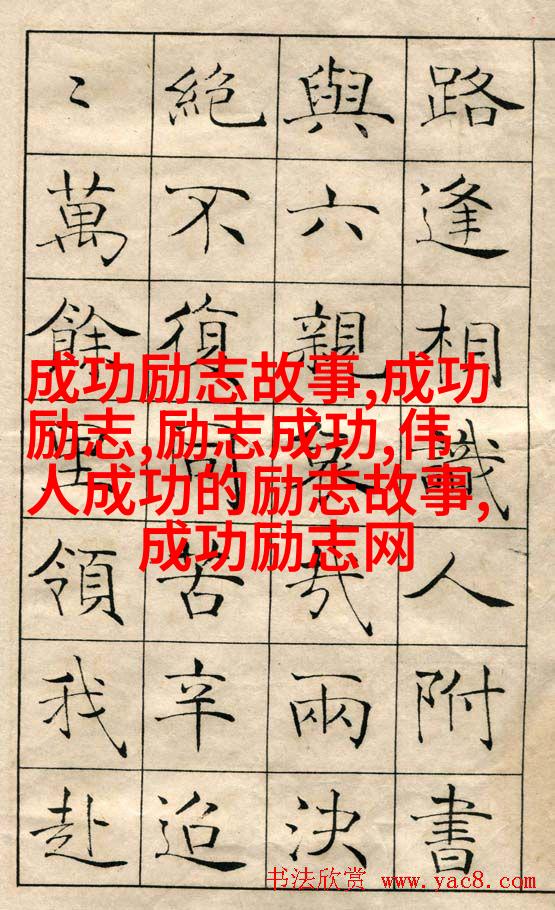 路逢相識人附書
與六親哀哉兩決
絕不復同苦辛迢
〻萬餘里領我赴
成功励志故事,成功
励志,励志成功,伟
人成功的励志故事,
成功励志网
书法欣赏 www.yac8.com